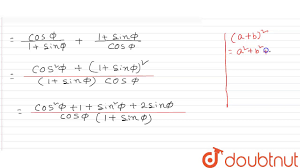 = cosφ / 1 + sinφ + 1 + sinφ / cosφ
= cos²φ + (1 + sinφ)² / (1 + sinφ) cosφ
= cos²φ + 1 + sin²φ + 2sinφ / cosφ (1 + sinφ)
(a+b)²
= a²+b²
doubtnut